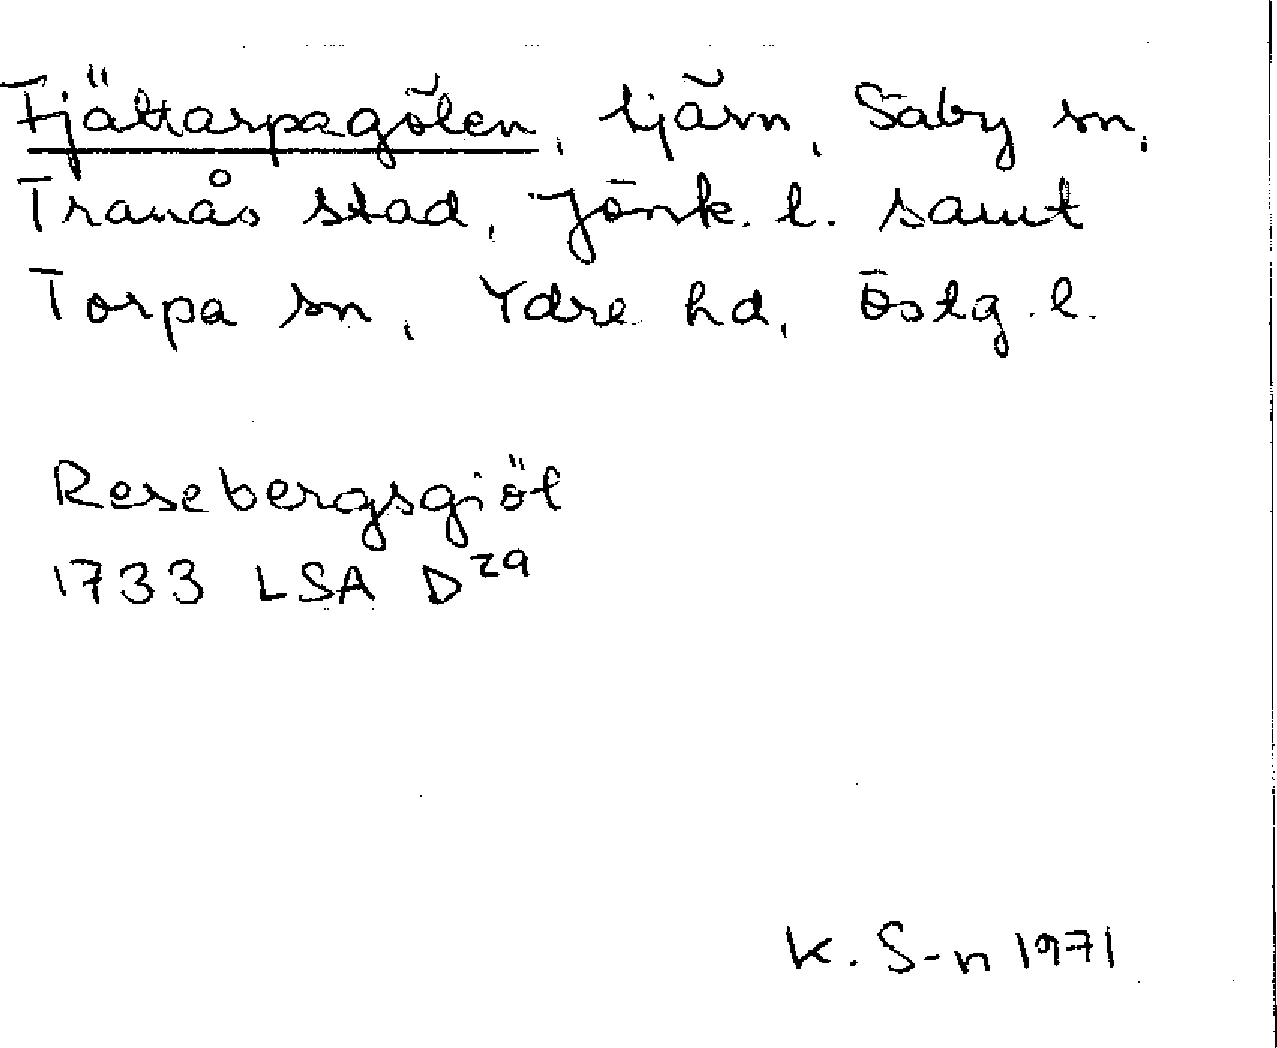 Fjättarpagölen, tjärn, Säby sn,
Tranås stad, Jönk. l. samt
Torpa sn, Ydre hd, Östg. l.
Resebergsgiöl
1733 LSA D 29
K. S-n 1971